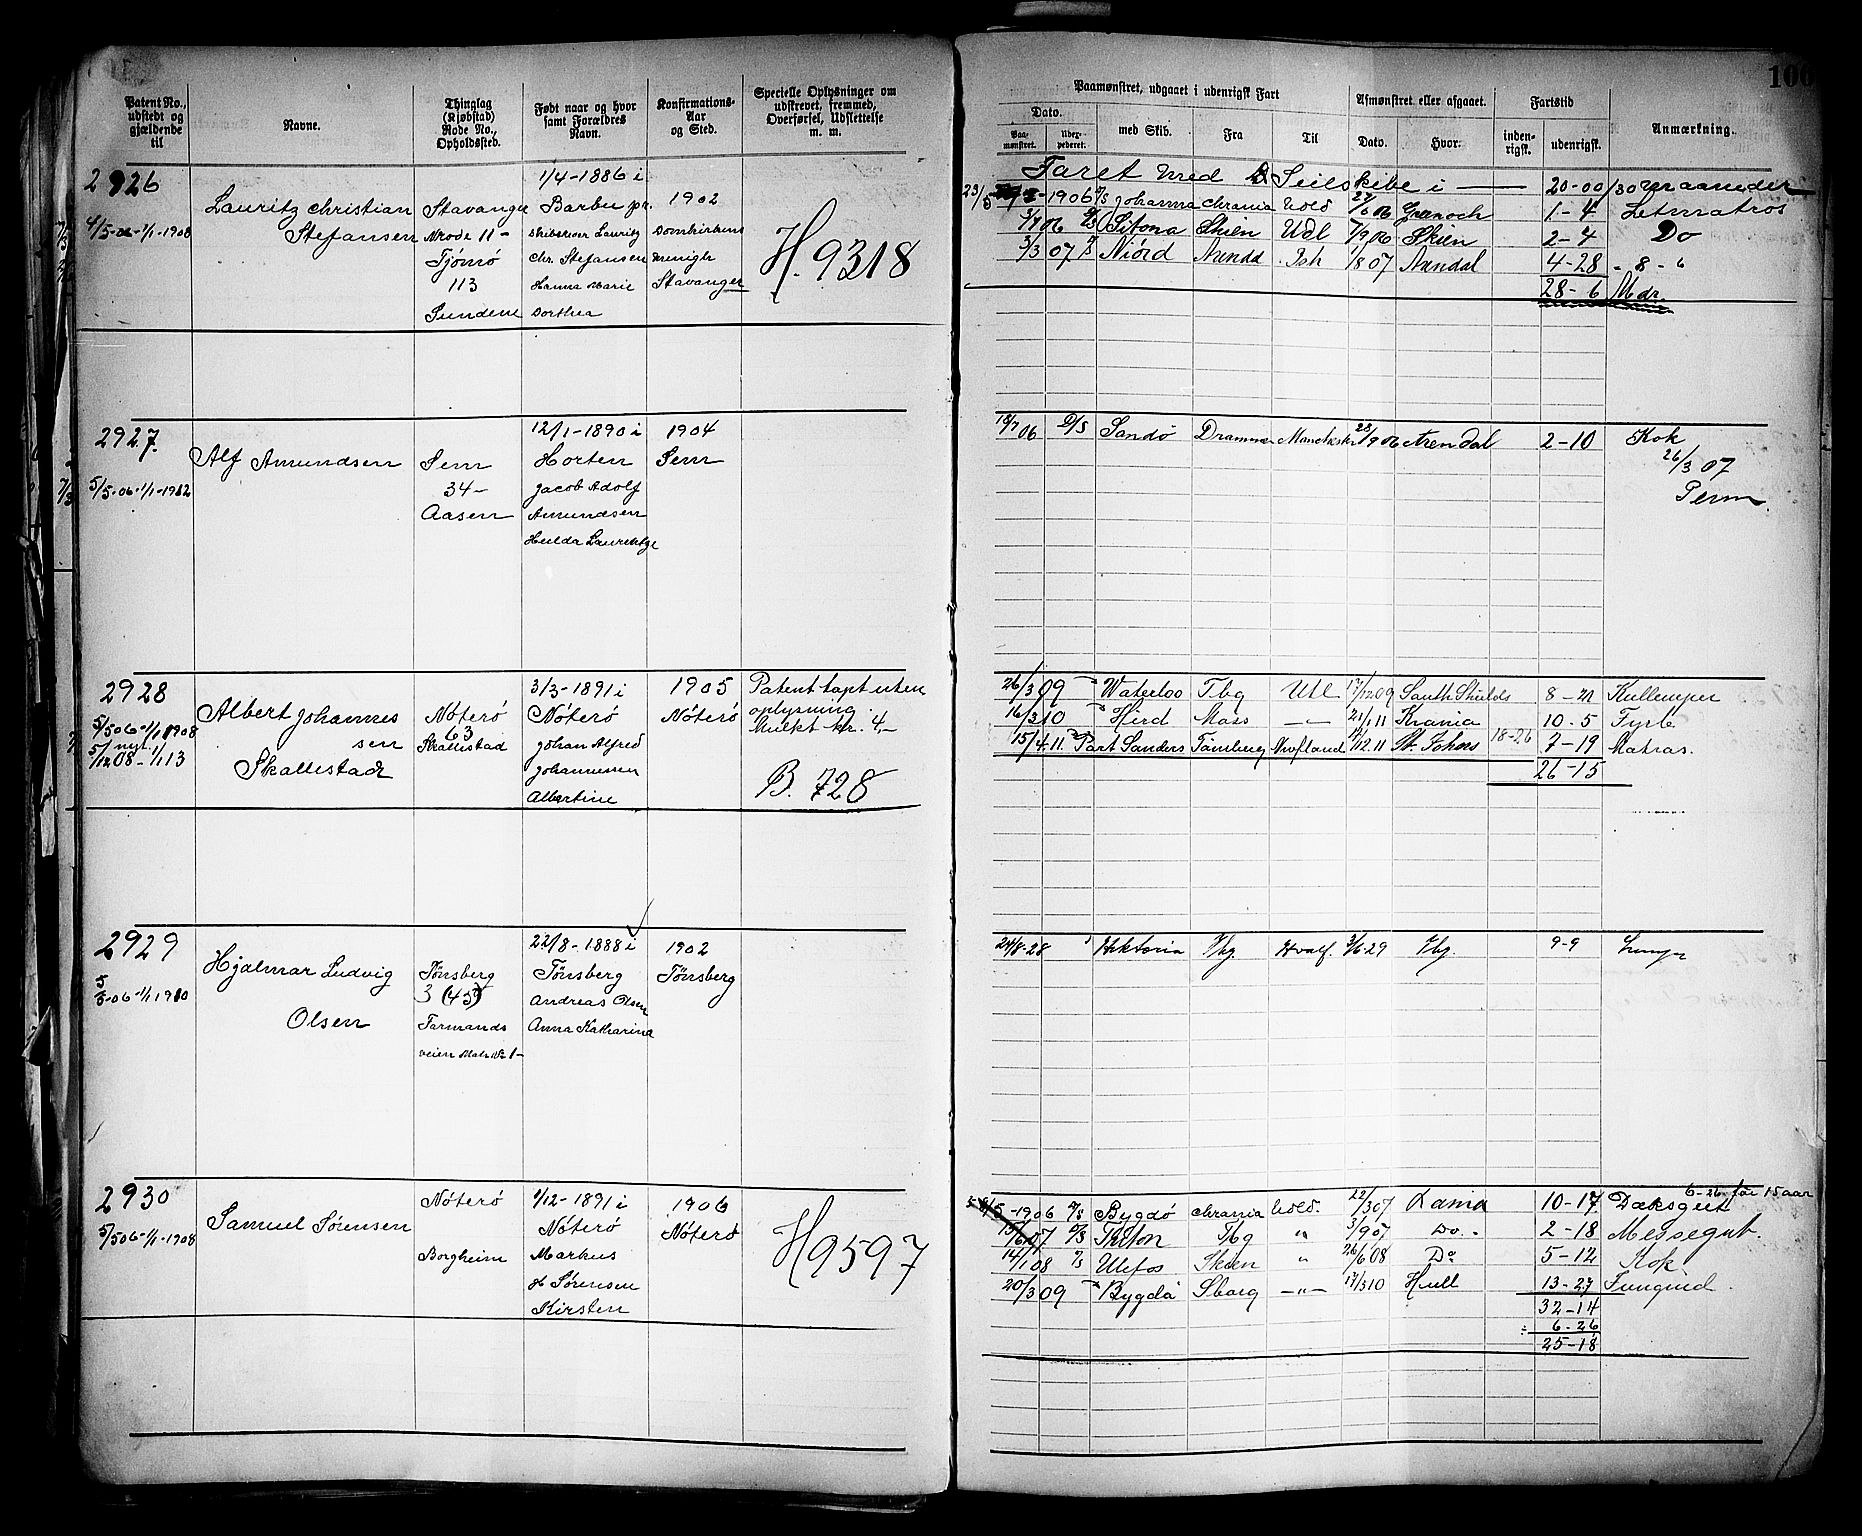 Patent No., udstedt og gjældende til
Navne.
Thinglag (Kjøbstad) Rode No., Opholdssted.
Født naar og hvor samt Forældres Navn.
Konfirmations-Aar og Sted.
Specielle Oplysninger om udskrevet, fremmed, Overførsel, Udslettelse m. m.
2926
4/5-06-1/1-1908
Lauritz Christian
Stefansen
Stavanger
Rode 11-
Tjømø
113
Sundene
1/4-1886 i
Barbu pr.
Skibsfører Lauritz
Chr. Stefansen
Hanna Marie
Dorthea
1902
Domkirkens
Menighed
Stavanger
H. 9318
2927.
5/5-06-1/1-1912
Alf Amundsen
Sem
34-
Aasen
12/1-1890 i
Horten
Jacob Adolf
Amundsen
Hulda Lauretze
1904
Sem
2928
5/5 06-1/1 1908
nyt.
5/12 08-1/1 13
Albert Johannes
sen
Skallestad
Nøterø
63
Skallestad
3/3-1891 i
Nøterø
Johan Alfred
Johannessen
Albertine
1905
Nøterø
Patent tapt uten
oplysning.
Mulkt kr. 4,-
B. 728
2929
5/5-06-1/1 1910
Hjalmar Ludvig
Olsen
Tønsberg
3 (45)
Farmands
veien Matr No 1-
22/8-1888 i
Tønsberg
Andreas Olsen
Anna Katharina
1902
Tønsberg
2930
5/5 06-1/1-1908
Samuel Sørensen
Nøterø
Borgheim
1/12-1891 i
Nøterø
Markus
H Sørensen
Kirsten
1906
Nøterø
H 9597
100
Paamønstret, udgaaet i udenrigsk Fart
Afmønstret eller afgaaet.
Fartstid
Anmærkning.
Dato.
Paamønstret.
Uderpederet.
med Skib.
Fra
Til
Dato.
Hvor.
indenrigsk.
udenrigsk.
Faret med Seilskibe i — 20-00/30 maaneder
23/5-1906 Johanna Chrania Uold 27/6 06 Grenoch 1-4 Letmatros
5/7 06 Sitona Skien Udl 7/9 06 Skien 2-4 Do
3/3 07 Niord Arendal Ish 1/8 07 Arendal 4-28 " 8 - "
28-6 Mdr.
18/7 06 D/S Sandø Drammen Manchester 28/9 06 Arendal 2-10 Kok
26/3 07
Perm.
26/3 09 Waterloo Tbg Utl 17/12 09 South Shields 8-21 Kullemper
16/3 10 Hird Moss —"— 21/1 11 Krania 10-5 Fyrb
15/4 11 Part Sanders Tønsberg Nwfland 19/12 11 St. Johns 18-26 7-19 Matros.
26-15
24/8-28 Viktoria Tbg. Hvalf. 3/6-29 Tbg. 9-9
6-26 før 15 aar
5/5-1906 D/S Bygdø Chrania Uold. 22/3 07 Lania 10-17 Dæksgut
15/6 07 D/S Triton Tbg " 3/9 07 Do. 2-18 Messegut.
14/1 08 Ulefos Skien " 26/6 08 Do 5-12 Kok
20/3 09 Bygdø Sborg —"— 17/3 10 Hull 13-27 Jungmd.
32-14
÷ 6-26
25-18